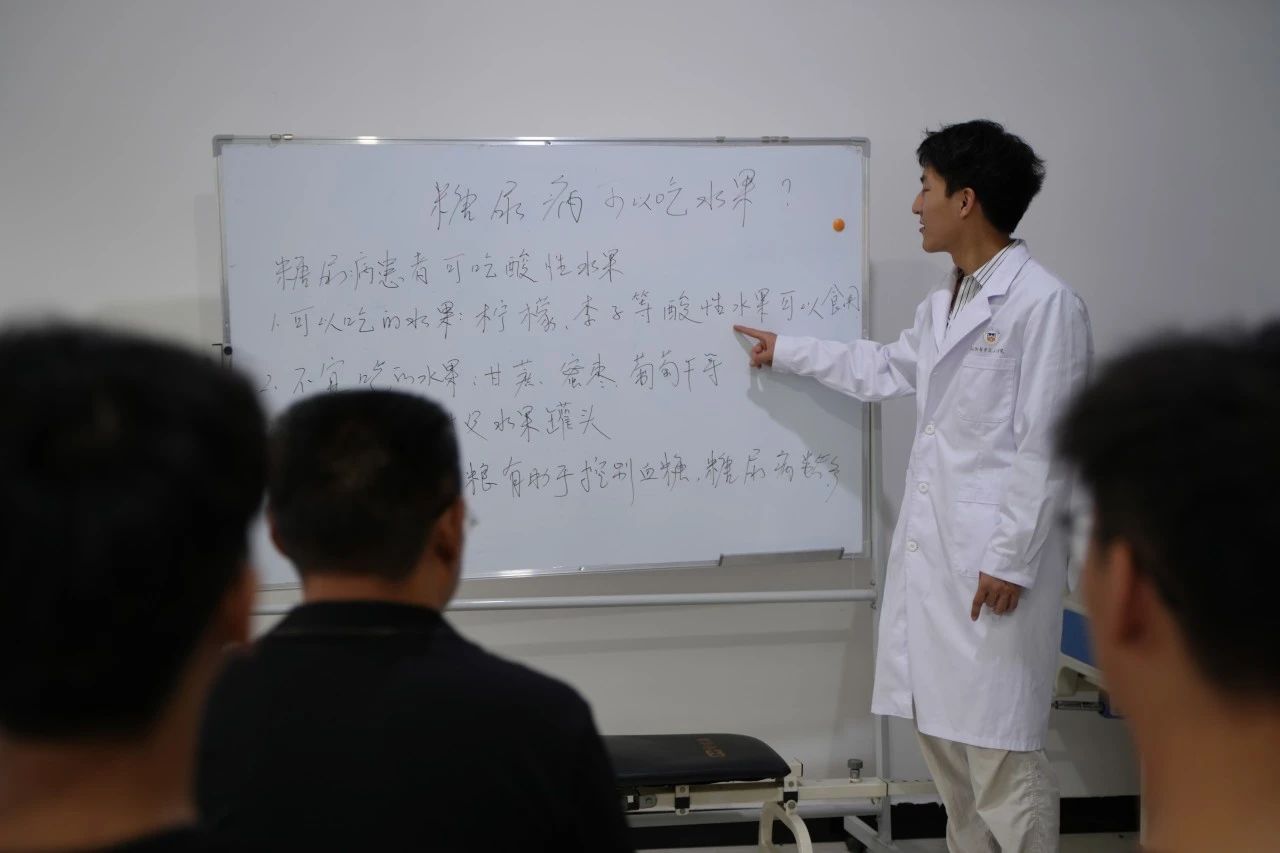 糖尿病可以吃水果?
糖尿病患者可吃酸性水果
1.可以吃的水果:柠檬、李子等酸性水果可以食用
2.不宜吃的水果:甘蔗、蜜枣、葡萄干等
水果罐头
粮有助于控制血糖,糖尿病